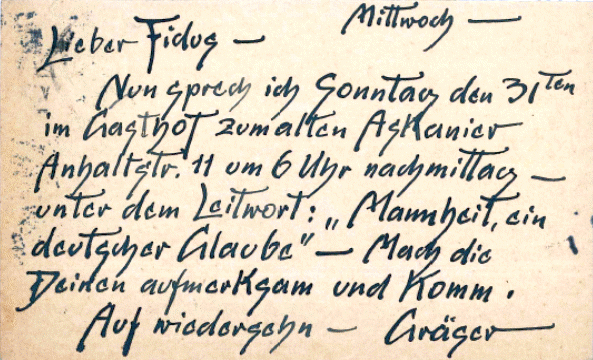 Mittwoch —
Lieber Fidus —
Nun sprech ich Sonntag den 31ten
im Gasthof zum alten Askanier
Anhaltstr. 11 um 6 Uhr nachmittag —
unter dem Leitwort: „Mannheit, ein
deutscher Glaube" — Mach die
Deinen aufmerksam und Komm.
Auf wiedersehn — Gräser